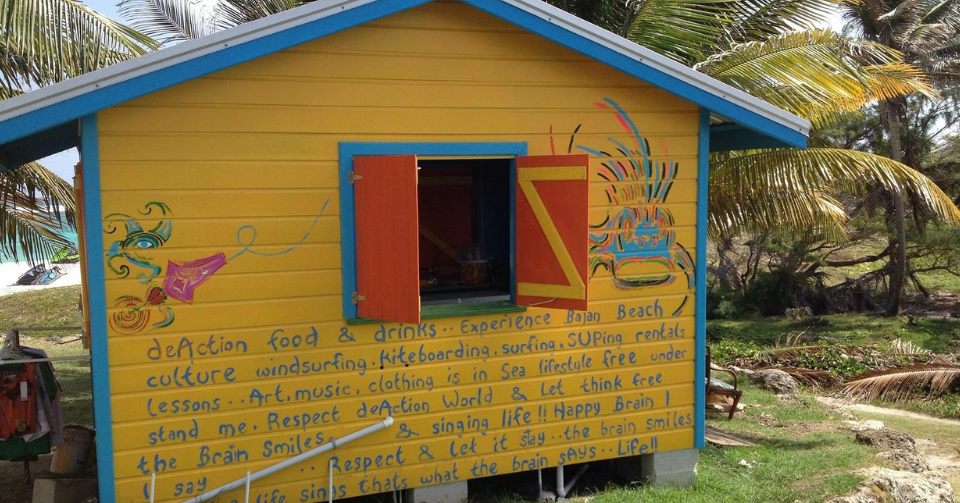 deAction food & drinks.. Experience Bajan Beach
culture windsurfing. Kiteboarding. surfing. SUPing rentals
lessons.. Art, music, clothing is in Sea lifestyle free under
stand me. Respect deAction World & let think free
the Brain Smiles & singing life!! Happy Brain I
I say .. Respect & Let it stay.. the brain smiles
life sings thats what the brain sAys.. Life!!